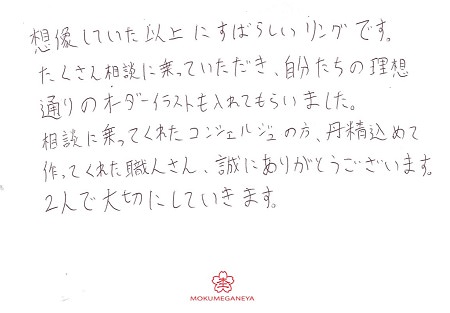 想像していた以上にすばらしいリングです。
たくさん相談に乗っていただき、自分たちの理想
通りのオーダーイラストも入れてもらいました。
相談に乗ってくれたコンジェルジュの方、丹精込めて
作ってくれた職人さん、誠にありがとうございます。
2人で大切にしていきます。
MOKUMEGANEYA